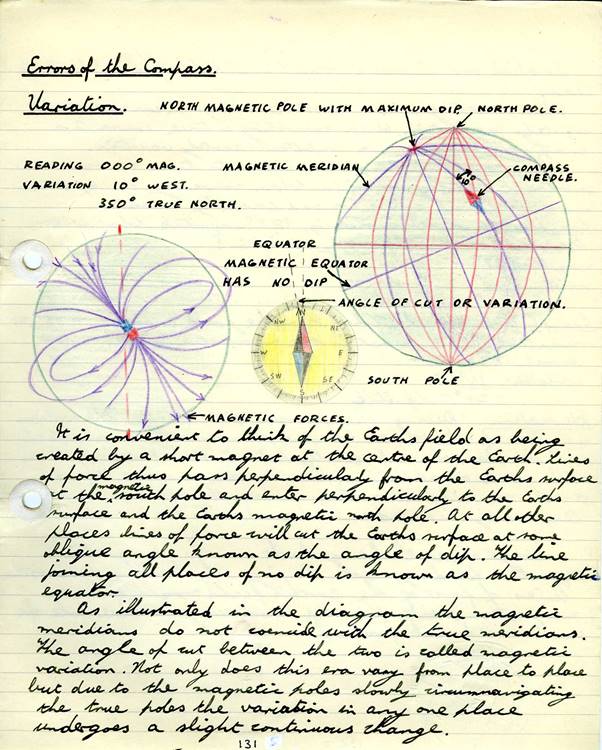 Errors of the Compass.
Variation.
NORTH MAGNETIC POLE WITH MAXIMUM DIP
NORTH POLE.
READING 000° MAG.
VARIATION 10° WEST.
350° TRUE NORTH.
MAGNETIC MERIDIAN
10°
COMPASS
NEEDLE.
EQUATOR
MAGNETIC EQUATOR
HAS NO DIP
ANGLE OF CUT OR VARIATION.
N
NE
E
SE
S
SW
W
NW
SOUTH POLE
MAGNETIC FORCES.
It is convenient to think of the Earths field as being
created by a short magnet at the centre of the Earth. Lines
of force thus pass perpendicularly from the Earths surface
at the magnetic south pole and enter perpendicularly to the Earths
surface and the Earths magnetic north pole. At all other
places lines of force will cut the Earths surface at some
oblique angle known as the angle of dip. The line
joining all places of no dip is known as the magnetic
equator.
As illustrated in the diagram the magnetic
meridians do not coincide with the true meridians.
The angle of cut between the two is called magnetic
variation. Not only does this era vary from place to place
but due to the magnetic poles slowly circumnavigating
the true poles the variation in any one place
undergoes a slight continuous change.
131